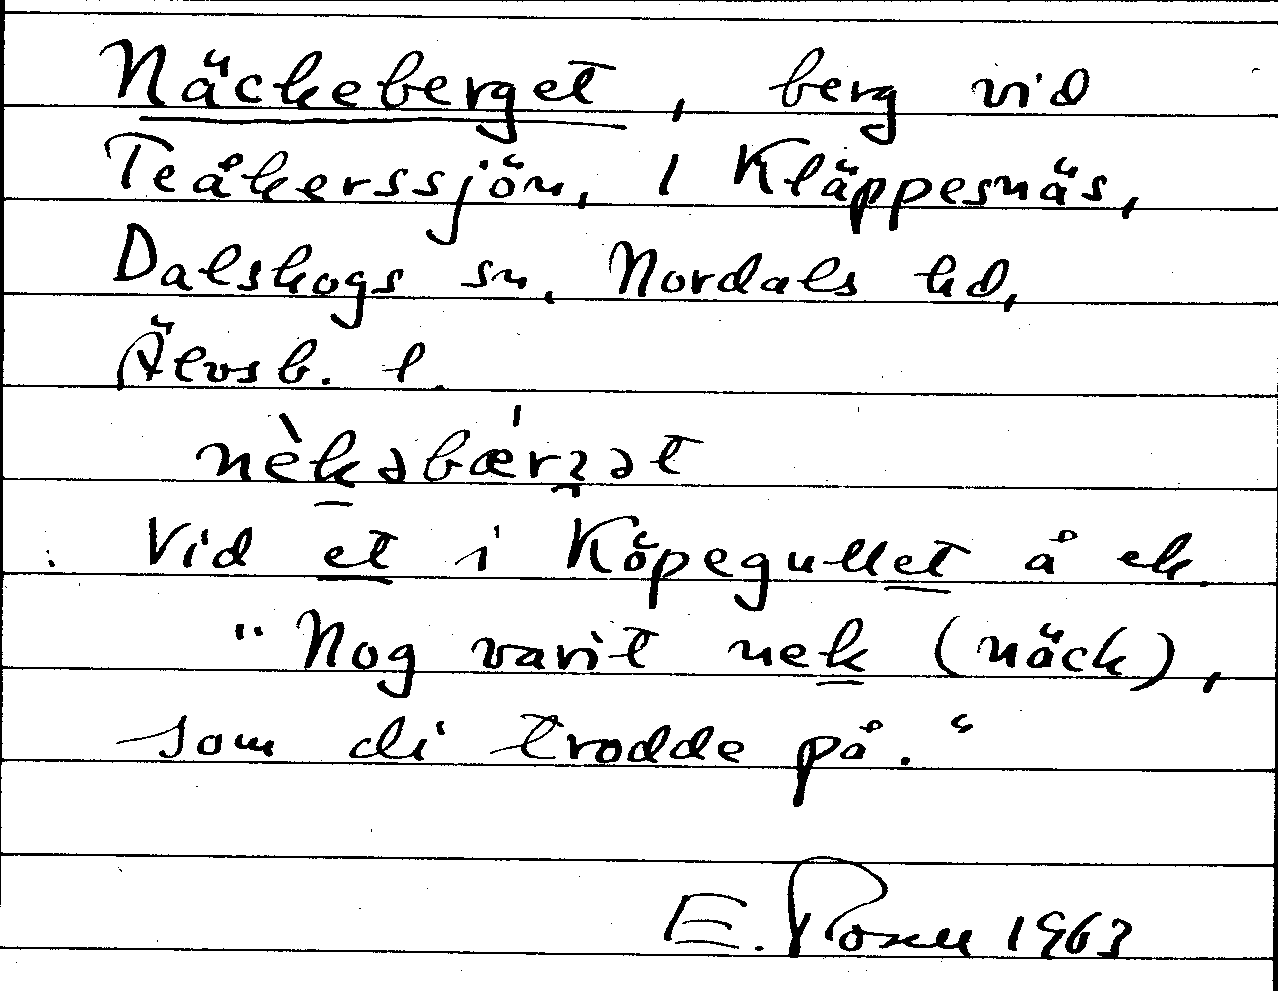 Näckeberget, berg vid
Teåkerssjön, i Kläppesnäs,
Dalskogs sn. Nordals hd,
Älvsb. l.
nèkəbærʒət
Vid et i Köpegullet å ek.
"Nog varit nek (näck),
som di trodde på."
E. Rosell 1963